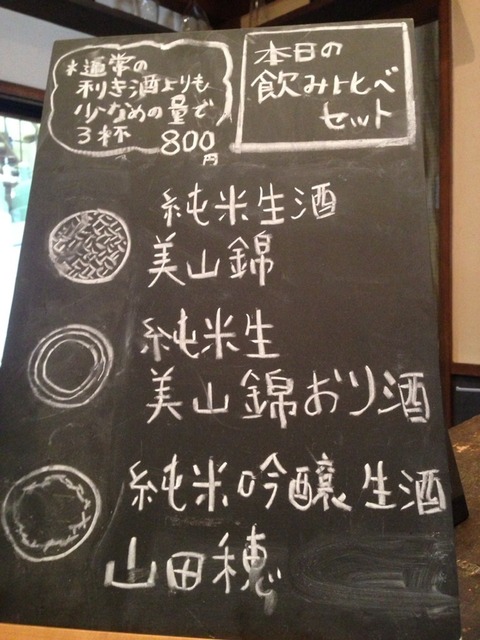 本日の
飲み比べ
セット
*通常の
利き酒よりも
少なめの量で
3杯 800
円
純米生酒
美山錦
純米生
美山錦おり酒
純米吟醸生酒
山田穂